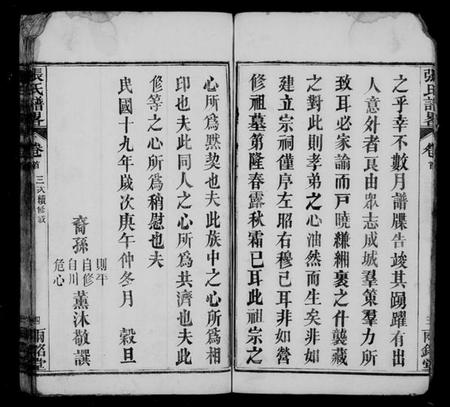 之乎幸不數月譜牒告竣其踴躍有出
人意外者良由眾志成城羣策羣力所
致耳必家諭而戸曉縑緗裹之什襲藏
之對此則孝弟之心油然而生矣非如
建立宗祠僅序左昭右穆已耳非如營
修祖墓第隆春露秋霜已耳此祖宗之
心所爲默契也夫此族中之心所爲相
印也夫此同人之心所爲共濟也夫此
修等之心所爲稍慰也夫
民國十九年歲次庚午仲冬月 穀旦
裔孫 則年 自修 自川 危心 薰沐敬譔
張氏譜畧 卷首 三次續修敘 四 雨銘堂
張氏譜畧 卷首